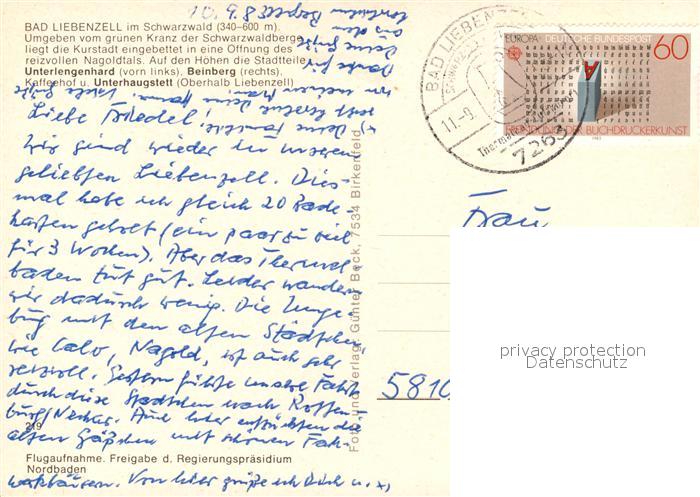 BAD LIEBENZELL im Schwarzwald (340–600 m).
Umgeben vom grünen Kranz der Schwarzwaldberge
liegt die Kurstadt eingebettet in eine Öffnung des
reizvollen Nagoldtals. Auf den Höhen die Stadtteile
Unterlengenhard (vorn links). Beinberg (rechts).
Kaffeehof u. Unterhaugstett (Oberhalb Liebenzell)
Liebe Friedel!
Wir sind wieder in unserem
geliebten Liebenzell. Dies-
mal habe ich gleich 20 Bade-
karten geholt (ein paar zu viel
für 3 Wochen). Aber das Thermal-
baden tut gut. Leider wandern
wir dadurch wenig. Die Umge-
bung mit den alten Städtchen
wie Calw, Nagold, ist auch sehr
reizvoll. Gestern führte unsere Fahrt
durch diese Städtchen nach Rotten-
burg/Neckar. Auch hier entzückten die
alten Gäßchen mit schönen Fach-
werkhäusern. Von hier grüße ich Dich u. x)
219
Flugaufnahme. Freigabe d. Regierungspräsidium
Nordbaden
x) Deine Familie,
Foto und Verlag: Günter Beck, 7534 Birkenfeld
BAD LIEBENZELL
11.-9
7263
EUROPA DEUTSCHE BUNDESPOST 60
ERFINDUNG DER BUCHDRUCKERKUNST
1983
Frau
5810
privacy protection
Datenschutz